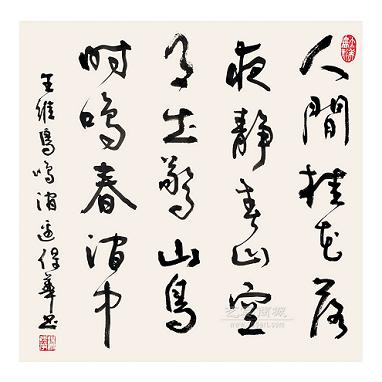 人間桂花落
夜靜春山空
月出驚山鳥
時鳴春澗中
王維鳥鳴澗保華書